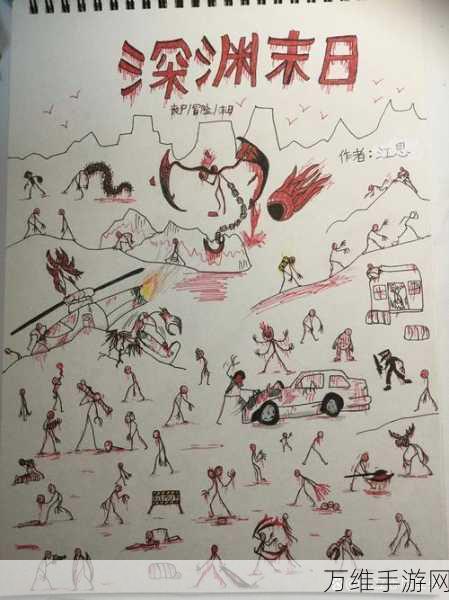 深渊末日
丧尸/冒险/末日
作者:江思
万维手游网